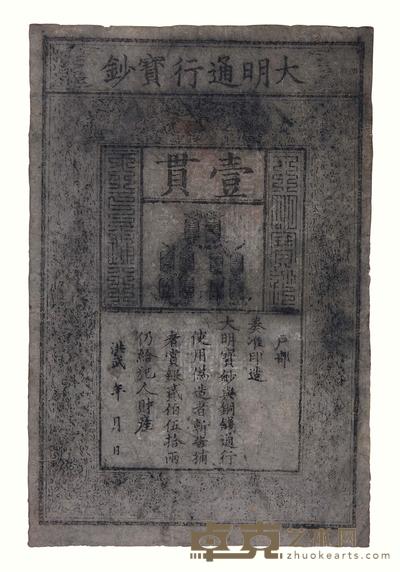 大明通行寶鈔
壹貫
戶部
奏准印造
大明寶鈔與銅錢通行
使用偽造者斬告捕
者賞銀貳佰伍拾兩
仍給犯人財產
洪武 年 月 日
卓克艺术网
zhuokearts.com